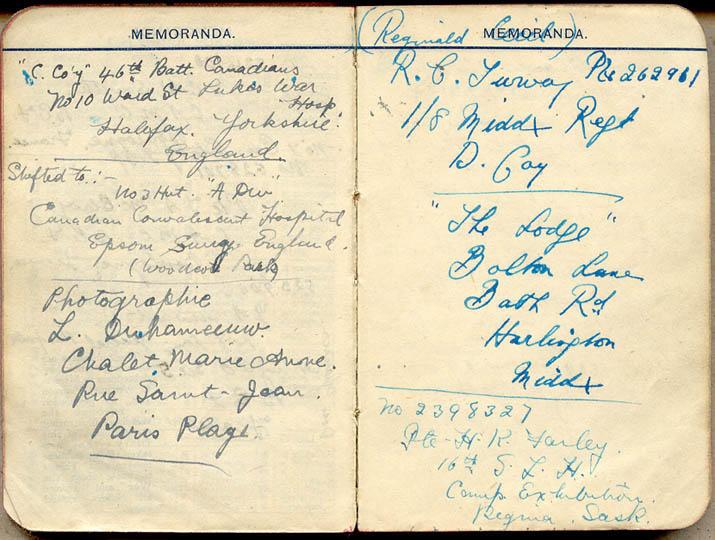 MEMORANDA.
"C. Co'y" 46th Batt. Canadians
No 10 Ward St Lukes War
Hosp.
Halifax. Yorkshire.
England.
Shifted to:-
No 3 Hut. "A Div"
Canadian Convalescent Hospital
Epsom Surrey England.
(Woodcote Park)
Photographie
L.
Chalet Marie Anne.
Rue Saint-Jean.
Paris Plage
(Reginald Cecil)
MEMORANDA.
R. C. Turvey Pte 262961
1/8 Middx Regt
D. Coy
"The Lodge"
Bolton Lane
Bath Rd
Harlington
Middx
No 2398327
Pte H. K. Farley.
16th S. L. H.
Camp Exhibition.
Regina. Sask.